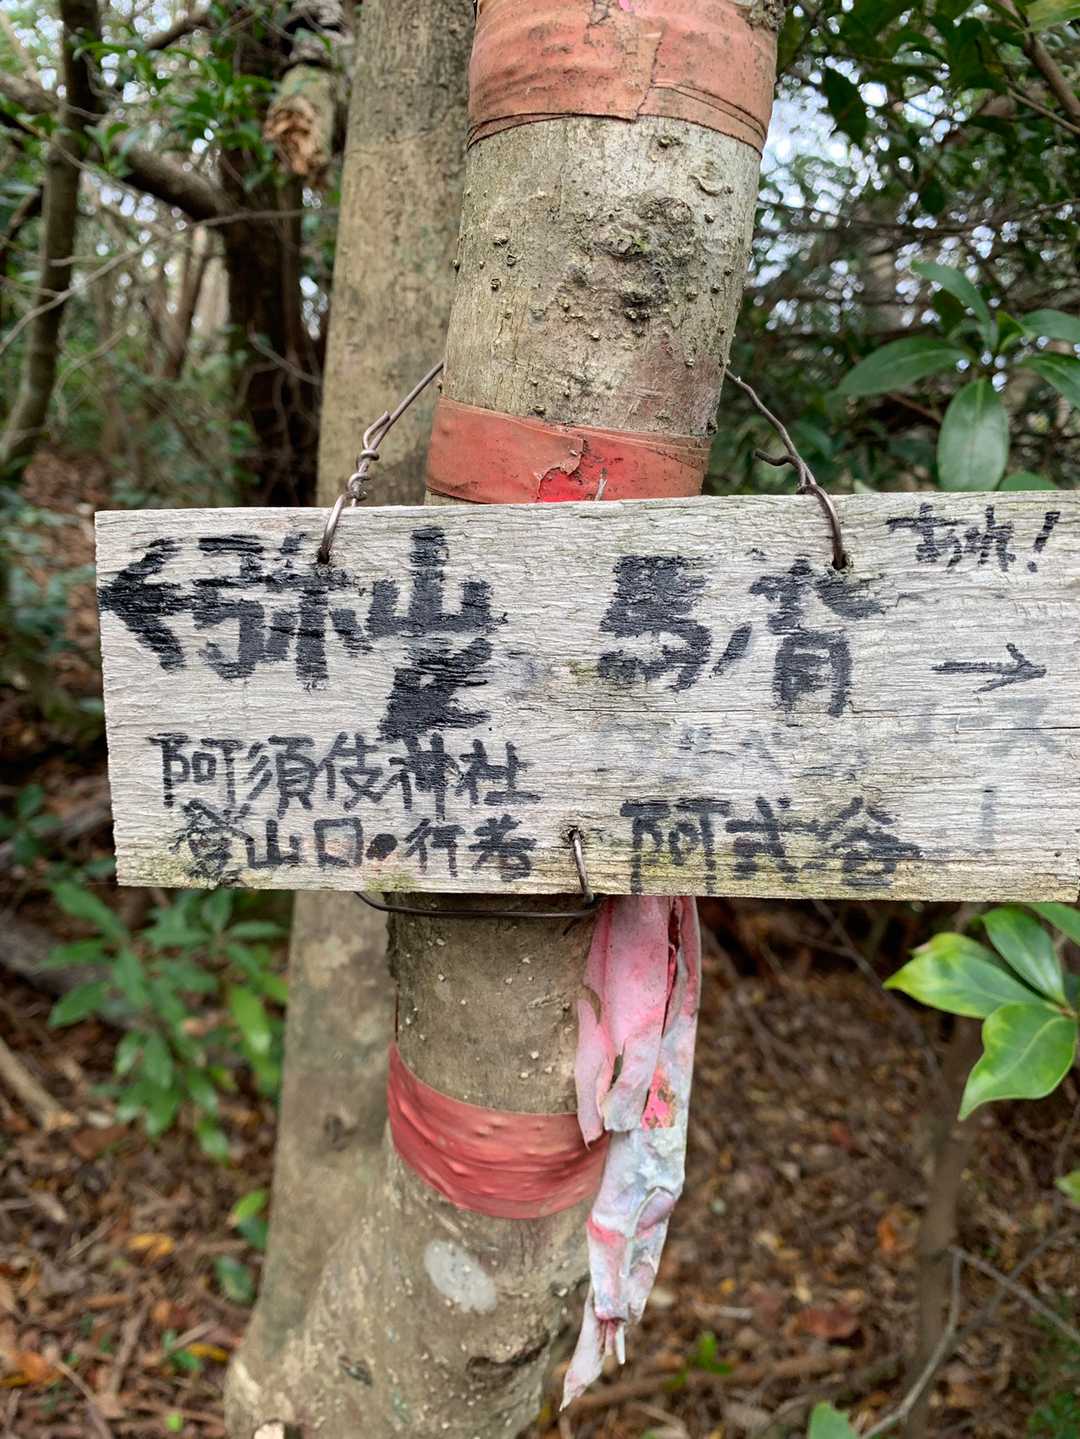 ← 弥山
阿須伎神社
登山口・行者
馬ノ背 →
阿式谷